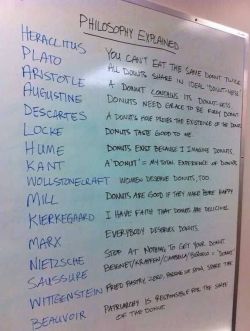 PHILOSOPHY EXPLAINED
HERACLITUS YOU CAN'T EAT THE SAME DONUT TWICE
PLATO ALL DONUTS SHARE IN IDEAL "DONUT-NESS"
ARISTOTLE A DONUT CONTAINS ITS DONUT-NESS
AUGUSTINE DONUTS NEED GRACE TO BE FULLY DONUT
DESCARTES A DONUT'S HOLE PROVES THE EXISTENCE OF THE DONUT
LOCKE DONUTS TASTE GOOD TO ME.
HUME DONUTS EXIST BECAUSE I IMAGINE DONUTS.
KANT A "DONUT" = MY TOTAL EXPERIENCE OF DONUTS
WOLLSTONECRAFT WOMEN DESERVE DONUTS, TOO.
MILL DONUTS ARE GOOD IF THEY MAKE PEOPLE HAPPY
KIERKEGAARD I HAVE FAITH THAT DONUTS ARE DELICIOUS.
MARX EVERYBODY DESERVES DONUTS.
NIETZSCHE STOP AT NOTHING TO GET YOUR DONUT.
SAUSSURE BEIGNET/KRAPFEN/CIAMBELLA/ = DONUT
WITTGENSTEIN FRIED PASTRY, ZERO, SPARE TIRE
BEAUVOIR PATRIARCHY IS RESPONSIBLE FOR THE SHAPE
OF THE DONUT.